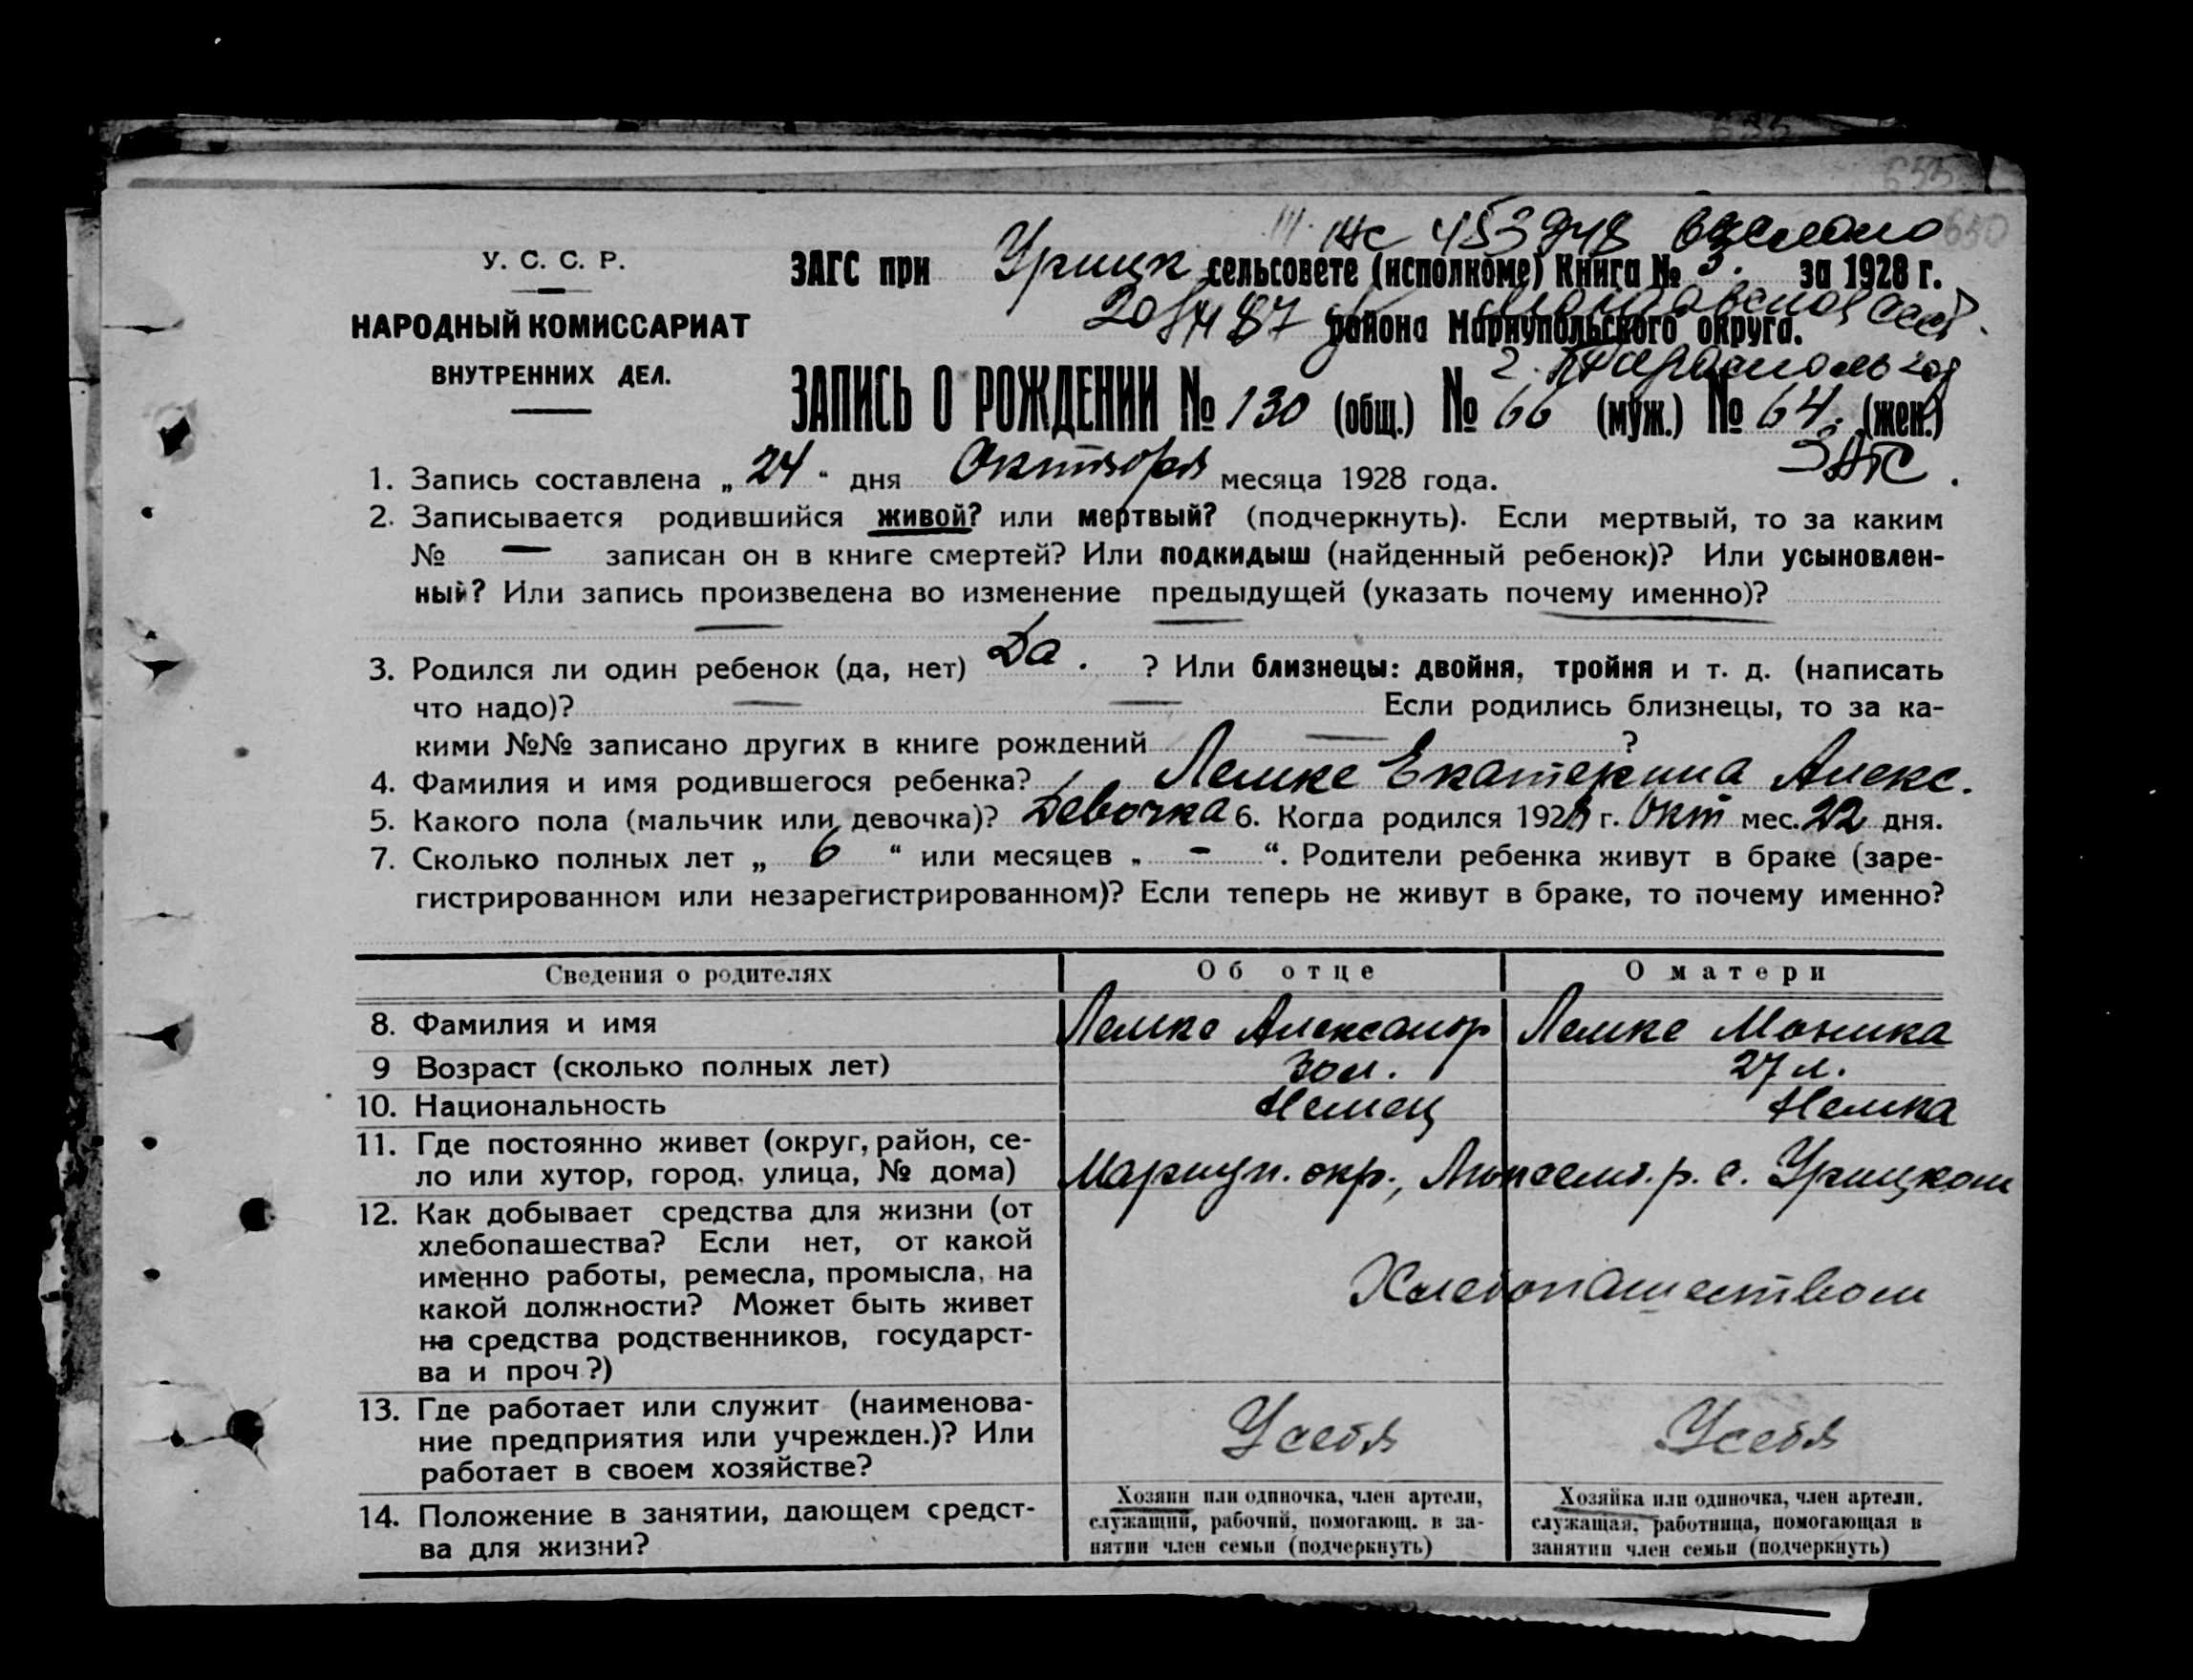 655
650
III. НС 453948 выслано
У. С. С. Р.
ЗАГС при Урицк сельсовете (исполкоме) Книга № 3. за 1928 г.
НАРОДНЫЙ КОМИССАРИАТ
20/IV 87 Молдавской ССР
района Мариупольского округа.
ВНУТРЕННИХ ДЕЛ.
г. Тирасполь гор
ЗАПИСЬ О РОЖДЕНИИ № 130 (общ.) № 66 (муж.) № 64. (жен.)
ЗАГС.
1. Запись составлена „ 24 “ дня Октября месяца 1928 года.
2. Записывается родившийся живой? или мертвый? (подчеркнуть). Если мертвый, то за каким
№ — записан он в книге смертей? Или подкидыш (найденный ребенок)? Или усыновлен-
ный? Или запись произведена во изменение предыдущей (указать почему именно)?
3. Родился ли один ребенок (да, нет) Да. ? Или близнецы: двойня, тройня и т. д. (написать
что надо)? — — Если родились близнецы, то за ка-
кими №№ записано других в книге рождений — ?
4. Фамилия и имя родившегося ребенка? Лемке Екатерина Алекс.
5. Какого пола (мальчик или девочка)? Девочка 6. Когда родился 1928 г. Окт мес. 22 дня.
7. Сколько полных лет „ 6 “ или месяцев „ - “. Родители ребенка живут в браке (заре-
гистрированном или незарегистрированном)? Если теперь не живут в браке, то почему именно?
Сведения о родителях Об отце О матери
8. Фамилия и имя Лемке Александр Лемке Моника
9 Возраст (сколько полных лет) 30 л. 27 л.
10. Национальность Немец Немка
11. Где постоянно живет (округ, район, се-
ло или хутор, город, улица, № дома) Мариуп. окр., Люксемб. р. с. Урицком
12. Как добывает средства для жизни (от
хлебопашества? Если нет, от какой
именно работы, ремесла, промысла, на
какой должности? Может быть живет
на средства родственников, государст-
ва и проч?)
Хлебопашеством
13. Где работает или служит (наименова-
ние предприятия или учрежден.)? Или
работает в своем хозяйстве?
У себя У себя
14. Положение в занятии, дающем средст-
ва для жизни?
Хозяин или одиночка, член артели,
служащий, рабочий, помогающ. в за-
нятии член семьи (подчеркнуть)
Хозяйка или одиночка, член артели,
служащая, работница, помогающая в
занятии член семьи (подчеркнуть)